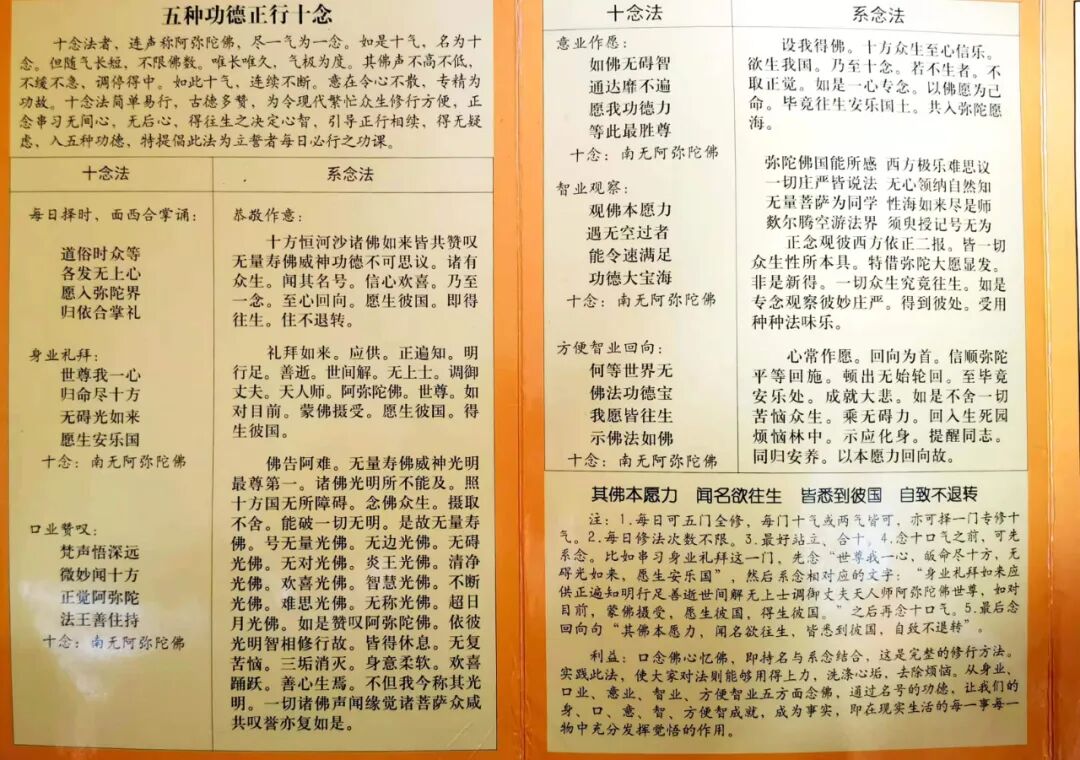 五种功德正行十念
十念法者，连声称阿弥陀佛，尽一气为一念。如是十气，名为十
念。但随气长短，不限佛数。唯长唯久，气极为度。其佛声不高不低，
不缓不急，调停得中。如此十气，连续不断。意在令心不散，专精为
功故。十念法简单易行，古德多赞，为令现代繁忙众生修行方便，正
念串习无间心，无后心，得往生之决定心智，引导正行相续，得无疑
虑，入五种功德，特提倡此法为立誓者每日必行之功课。
十念法
系念法
每日择时、面西合掌诵：
道俗时众等
各发无上心
愿入弥陀界
归依合掌礼
恭敬作意：
十方恒河沙诸佛如来皆共赞叹
无量寿佛威神功德不可思议。诸有
众生。闻其名号。信心欢喜。乃至
一念。至心回向。愿生彼国。即得
往生。住不退转。
身业礼拜：
世尊我一心
归命尽十方
无碍光如来
愿生安乐国
十念：南无阿弥陀佛
礼拜如来。应供。正遍知。明
行足。善逝。世间解。无上士。调御
丈夫。天人师。阿弥陀佛。世尊。如
对目前。蒙佛摄受。愿生彼国。得
生彼国。
口业赞叹：
梵声悟深远
微妙闻十方
正觉阿弥陀
法王善住持
十念：南无阿弥陀佛
佛告阿难。无量寿佛威神光明
最尊第一。诸佛光明所不能及。照
十方国无所障碍。念佛众生。摄取
不舍。能破一切无明。是故无量寿
佛。号无量光佛。无边光佛。无碍
光佛。无对光佛。炎王光佛。清净
光佛。欢喜光佛。智慧光佛。不断
光佛。难思光佛。无称光佛。超日
月光佛。如是赞叹阿弥陀佛。依彼
光明智相修行故。皆得休息。无复
苦恼。三垢消灭。身意柔软。欢喜
踊跃。善心生焉。不但我今称其光
明。一切诸佛声闻缘觉诸菩萨众咸
共叹誉亦复如是。
十念法
系念法
意业作愿：
如佛无碍智
通达靡不遍
愿我功德力
等此最胜尊
十念：南无阿弥陀佛
设我得佛。十方众生至心信乐。
欲生我国。乃至十念。若不生者。不
取正觉。如是一心专念。以佛愿为己
命。毕竟往生安乐国土。共入弥陀愿
海。
智业观察：
观佛本愿力
遇无空过者
能令速满足
功德大宝海
十念：南无阿弥陀佛
弥陀佛国能所感 西方极乐难思议
一切庄严皆说法 无心领纳自然知
无量菩萨为同学 性海如来尽是师
欻尔腾空游法界 须臾授记号无为
正念观彼西方依正二报。皆一切
众生性所本具。特借弥陀大愿显发。
非是新得。一切众生究竟往生。如是
专念观察彼妙庄严。得到彼处。受用
种种法味乐。
方便智业回向：
何等世界无
佛法功德宝
我愿皆往生
示佛法如佛
十念：南无阿弥陀佛
心常作愿。回向为首。信顺弥陀
平等回施。顿出无始轮回。至毕竟
安乐处。成就大悲。如是不舍一切
苦恼众生。乘无碍力。回入生死园
烦恼林中。示应化身。提醒同志。
同归安养。以本愿力回向故。
其佛本愿力 闻名欲往生 皆悉到彼国 自致不退转
注：1.每日可五门全修，每门十气或两气皆可，亦可择一门专修十
气。2.每日修法次数不限。3.最好站立、合十。4.念十口气之前，可先
系念。比如串习身业礼拜这一门，先念“世尊我一心，皈命尽十方，无
碍光如来，愿生安乐国”，然后系念相对应的文字：“身业礼拜如来应
供正遍知明行足善逝世间解无上士调御丈夫天人师阿弥陀佛世尊，如对
目前，蒙佛摄受，愿生彼国，得生彼国。”之后再念十口气。5.最后念
回向句“其佛本愿力，闻名欲往生，皆悉到彼国，自致不退转”。
利益：口念佛心忆佛，即持名与系念结合，这是完整的修行方法。
实践此法，使大家对法则能够用得上力，洗涤心垢，去除烦恼。从身业、
口业、意业、智业、方便智业五方面念佛，通过名号的功德，让我们的
身、口、意、智、方便智成就，成为事实，即在现实生活的每一事每一
物中充分发挥觉悟的作用。